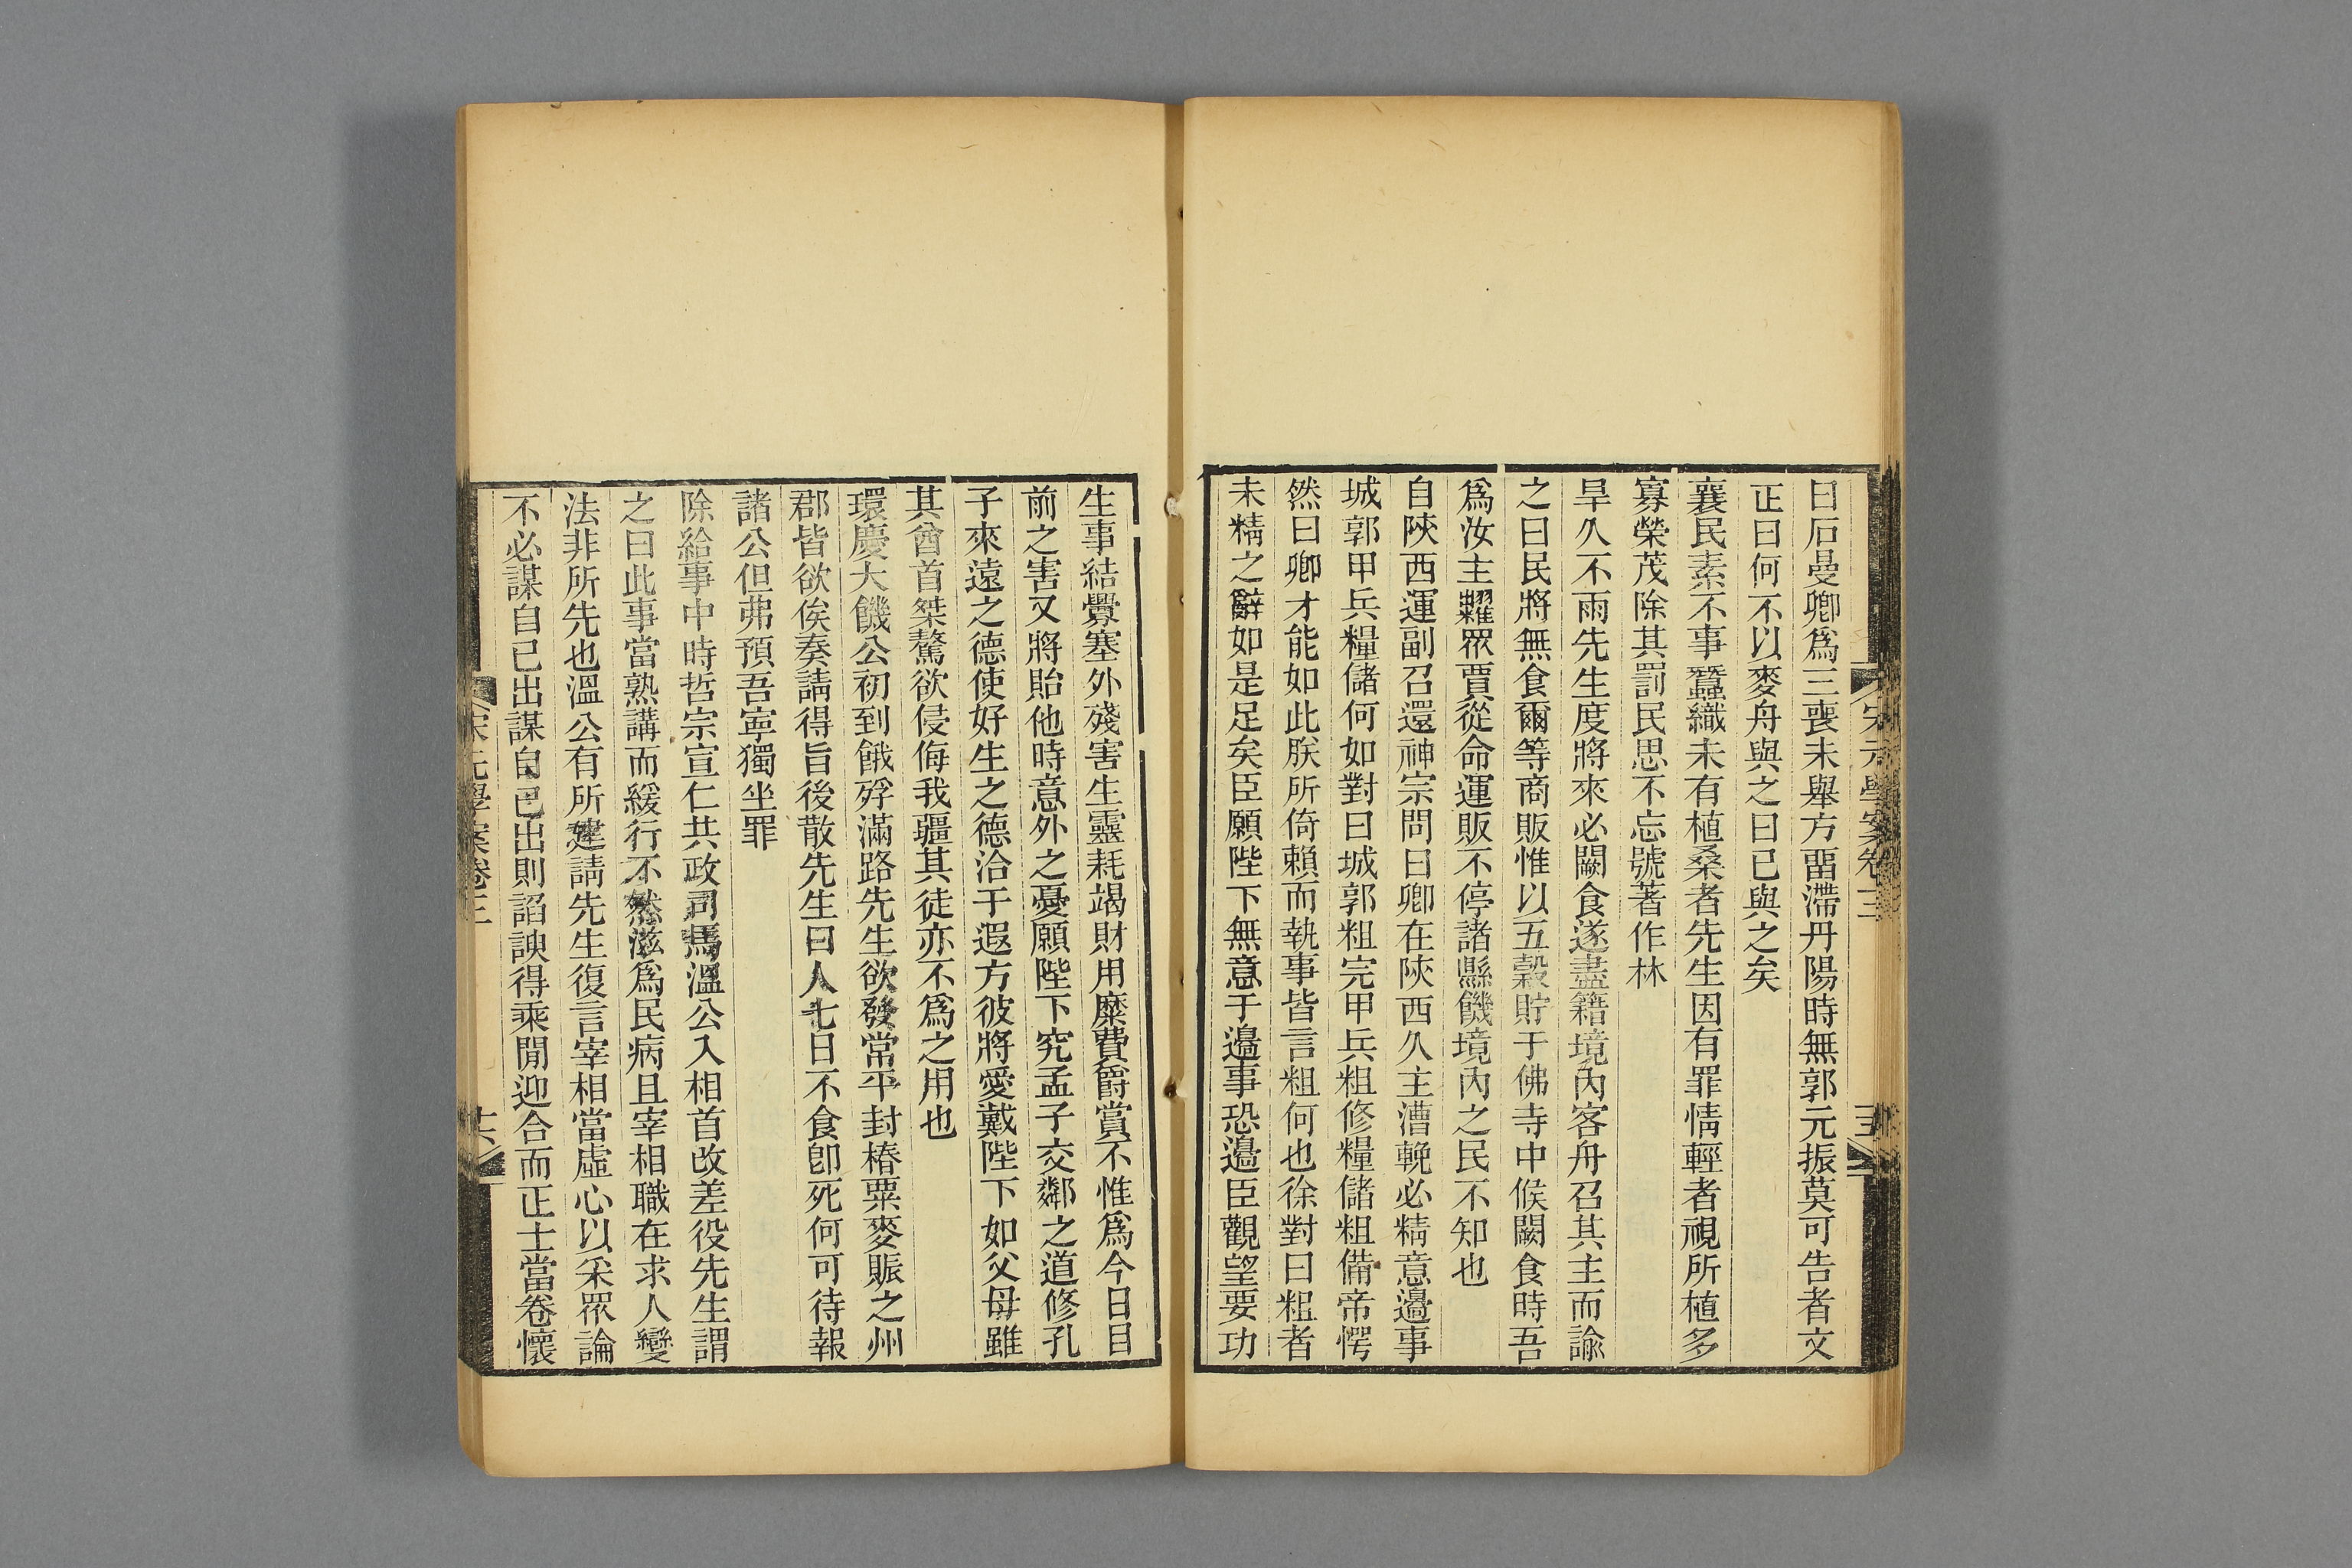 曰石曼卿爲三喪未舉方畱滯丹陽時無郭元振莫可告者文
正曰何不以麥舟與之曰已與之矣
襄民素不事蠶織未有植桑者先生因有罪情輕者視所植多
寡榮茂除其罰民思不忘號著作林
旱久不雨先生度將來必闕食遂盡籍境內客舟召其主而諭
之曰民將無食爾等商販惟以五穀貯于佛寺中候闕食時吾
爲汝主糶眾賈從命運販不停諸縣饑境內之民不知也
自陝西運副召還神宗問曰卿在陝西久主漕輓必精意邊事
城郭甲兵糧儲何如對曰城郭粗完甲兵粗修糧儲粗備帝愕
然曰卿才能如此朕所倚賴而執事皆言粗何也徐對曰粗者
未精之辭如是足矣臣願陛下無意于邊事恐邊臣觀望要功
生事結釁塞外殘害生靈耗竭財用糜費爵賞不惟爲今日目
前之害又將貽他時意外之憂願陛下究孟子交鄰之道修孔
子來遠之德使好生之德洽于遐方彼將愛戴陛下如父母雖
其酋首桀驁欲侵侮我疆其徒亦不爲之用也
環慶大饑公初到餓殍滿路先生欲發常平封樁粟麥賑之州
郡皆欲俟奏請得旨後散先生曰人七日不食卽死何可待報
諸公但弗預吾寧獨坐罪
除給事中時哲宗宣仁共政司馬溫公入相首改差役先生謂
之曰此事當熟講而緩行不然滋爲民病且宰相職在求人變
法非所先也溫公有所建請先生復言宰相當虛心以采眾論
不必謀自己出謀自己出則諂諛得乘閒迎合而正士當卷懷
宋元學案卷三
宋元學案卷三
十六